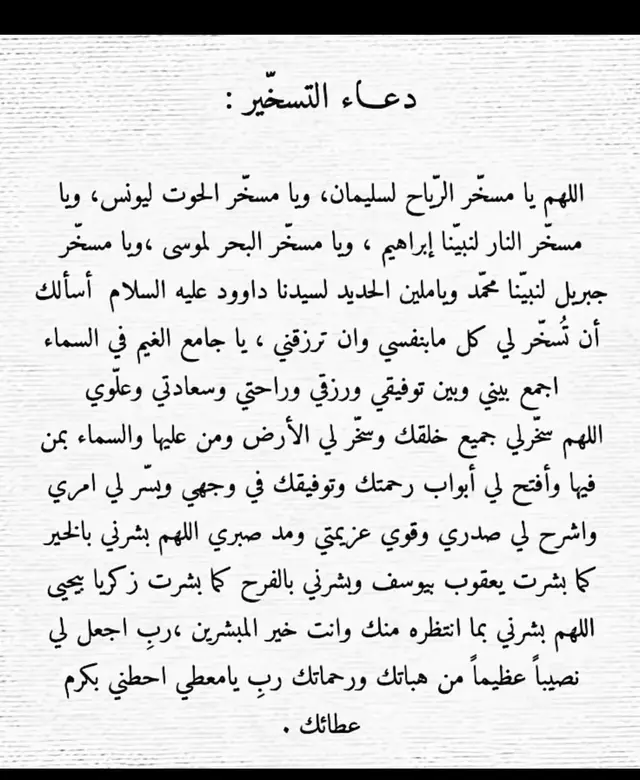 دعاء التسخّير :
اللهم يا مسخّر الرّياح لسليمان، ويا مسخّر الحوت ليونس، ويا
مسخّر النار لنبيّنا إبراهيم ، ويا مسخّر البحر لموسى ،ويا مسخّر
جبريل لنبيّنا محمّد وياملين الحديد لسيدنا داوود عليه السلام أسألك
أن تُسخّر لي كل مابنفسي وان ترزقني ، يا جامع الغيم في السماء
اجمع بيني وبين توفيقي ورزقي وراحتي وسعادتي وعلّوي
اللهم سخّرلي جميع خلقك وسخّر لي الأرض ومن عليها والسماء بمن
فيها وأفتح لي أبواب رحمتك وتوفيقك في وجهي ويسّر لي امري
واشرح لي صدري وقوي عزيمتي ومد صبري اللهم بشرني بالخير
كما بشرت يعقوب بيوسف وبشرني بالفرح كما بشرت زكريا بيحيى
اللهم بشرني بما انتظره منك وانت خير المبشرين ،ربِ اجعل لي
نصيباً عظيماً من هباتك ورحماتك ربِ يامعطي احطني بكرم
عطائك .